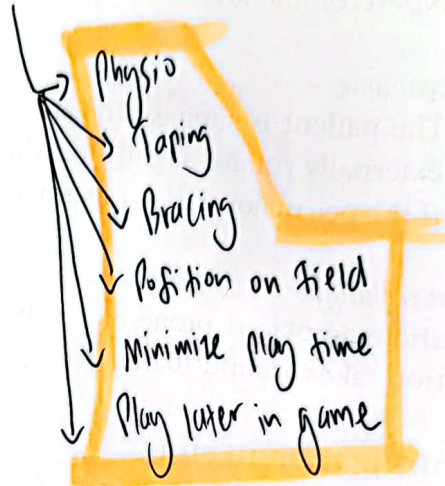 Physio
Taping
Bracing
Position on Field
Minimize play time
Play later in game